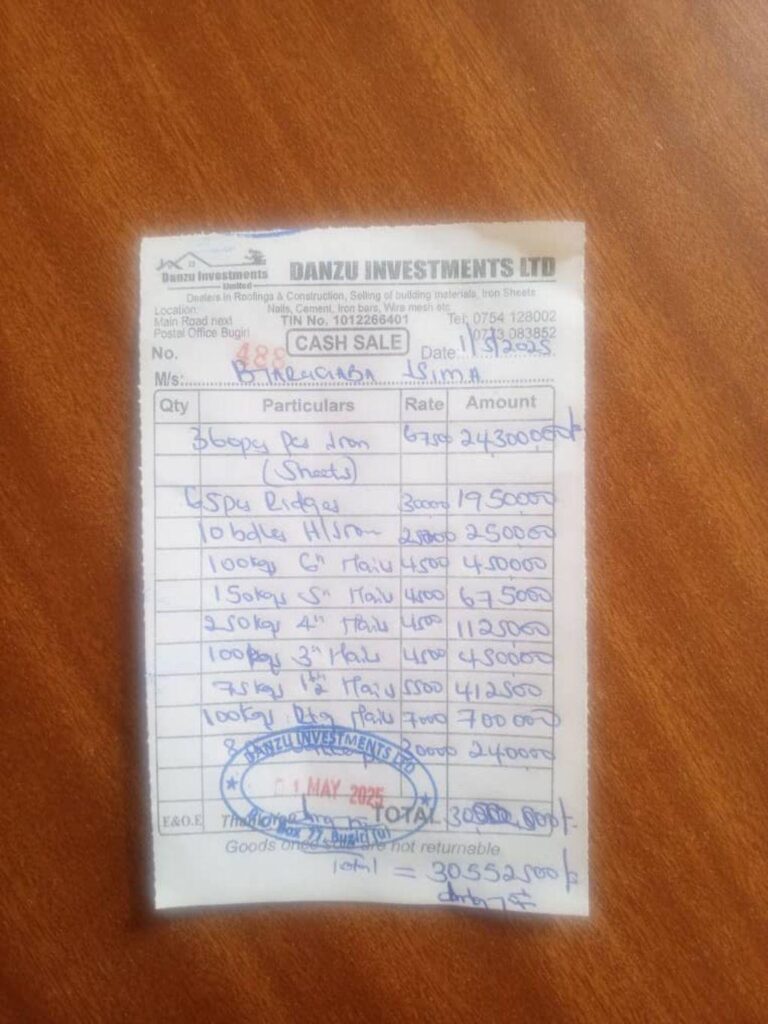 Danzu Investments
Limited
DANZU INVESTMENTS LTD
Dealers in Roofings & Construction, Selling of building materials, Iron Sheets
Nails, Cement, Iron bars, Wire mesh etc.
Location:
Main Road next
Postal Office Bugiri
TIN No. 1012266401
Tel: 0754 128002
0773 083852
No. 488
CASH SALE
Date: 1/5/2025
M/s:
Qty Particulars Rate Amount
360pcs Iron 67500 24300000/=
(Sheets)
65pcs Ridges 30000 1950000
10 bdles H/Iron 25000 250000
100kgs 6" Nails 4500 450000
150kgs 5" Nails 4500 675000
250kgs 4" Nails 4500 1125000
100kgs 3" Nails 4500 450000
75kgs 1½ Nails 5500 412500
100kgs Nails 7000 700000
8 30000 240000
DANZU INVESTMENTS LTD
01 MAY 2025
Box 77, Bugiri (U)
E&O.E TOTAL
Goods once sold are not returnable
Total = 30552500/=